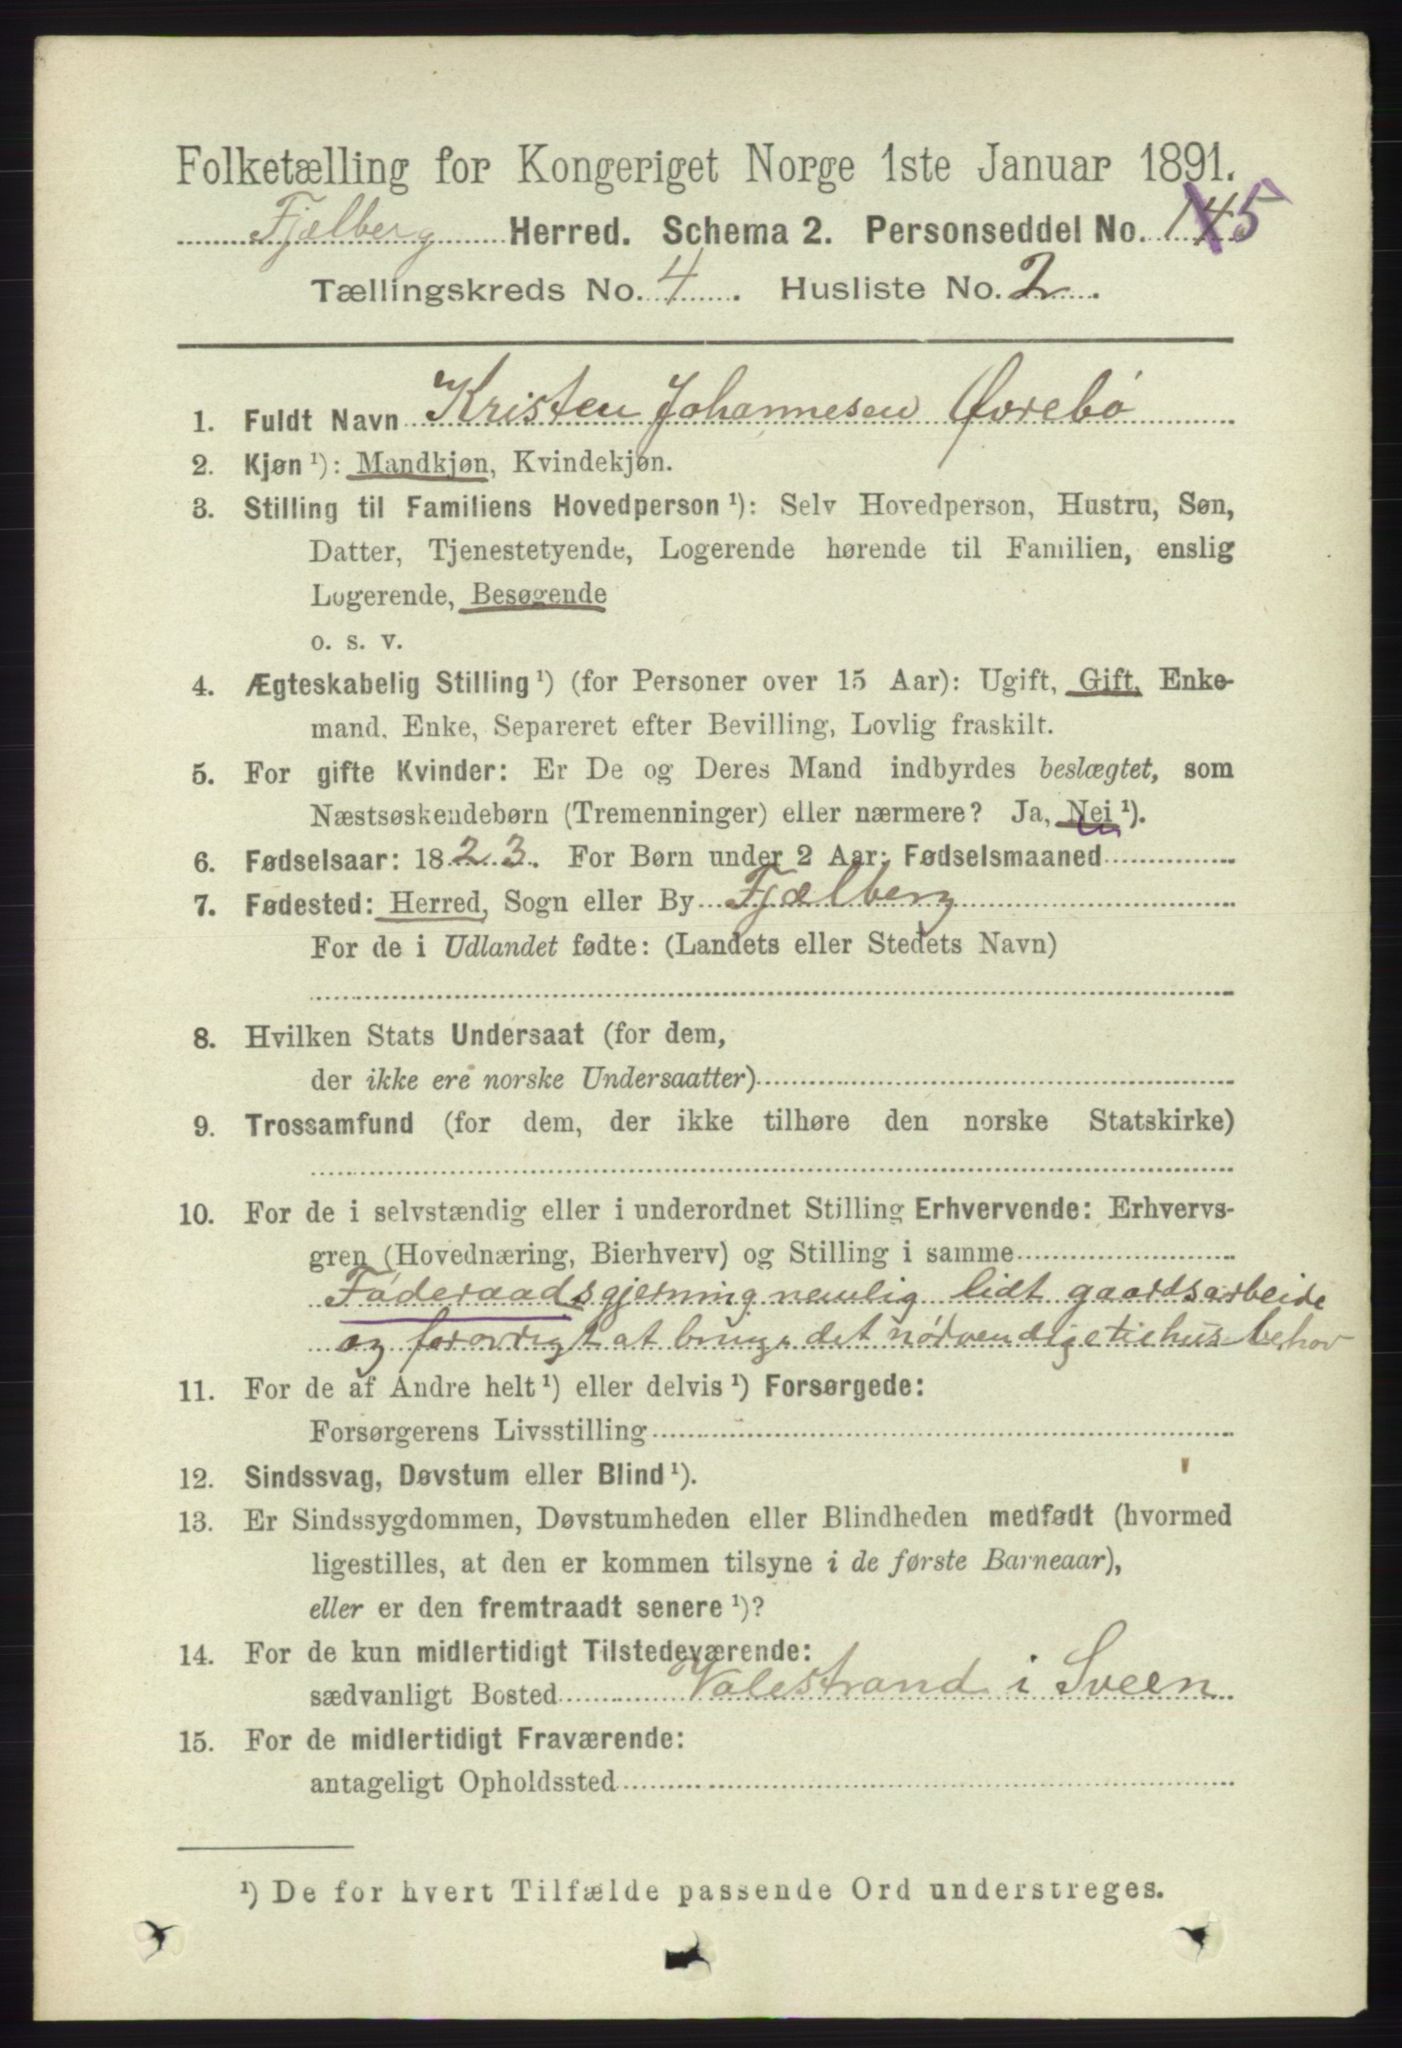 Folketælling for Kongeriget Norge 1ste Januar 1891.
Fjælberg Herred. Schema 2. Personseddel No. 145
Tællingskreds No. 4. Husliste No. 2.
1. Fuldt Navn Kristen Johannesen Øvrebö
2. Kjøn¹): Mandkjøn, Kvindekjøn.
3. Stilling til Familiens Hovedperson¹): Selv Hovedperson, Hustru, Søn,
Datter, Tjenestetyende, Logerende hørende til Familien, enslig
Logerende, Besøgende
o. s. v.
4. Ægteskabelig Stilling¹) (for Personer over 15 Aar): Ugift, Gift, Enke-
mand, Enke, Separeret efter Bevilling, Lovlig fraskilt.
5. For gifte Kvinder: Er De og Deres Mand indbyrdes beslægtet, som
Næstsøskendebørn (Tremenninger) eller nærmere? Ja, Nei¹).
6. Fødselsaar: 1823. For Børn under 2 Aar: Fødselsmaaned
7. Fødested: Herred, Sogn eller By Fjælberg
For de i Udlandet fødte: (Landets eller Stedets Navn)
8. Hvilken Stats Undersaat (for dem,
der ikke ere norske Undersaatter)
9. Trossamfund (for dem, der ikke tilhøre den norske Statskirke)
10. For de i selvstændig eller i underordnet Stilling Erhvervende: Erhvervs-
gren (Hovednæring, Bierhverv) og Stilling i samme
Föderaadsgjerning nemlig lidt gaardsarbeide
og forövrigt at bruge det nödvendige til husbehov
11. For de af Andre helt¹) eller delvis¹) Forsørgede:
Forsørgerens Livsstilling
12. Sindssvag, Døvstum eller Blind¹).
13. Er Sindssygdommen, Døvstumheden eller Blindheden medfødt (hvormed
ligestilles, at den er kommen tilsyne i de første Barneaar),
eller er den fremtraadt senere¹)?
14. For de kun midlertidigt Tilstedeværende:
sædvanligt Bosted Valestrand i Sveen
15. For de midlertidigt Fraværende:
antageligt Opholdssted
¹) De for hvert Tilfælde passende Ord understreges.